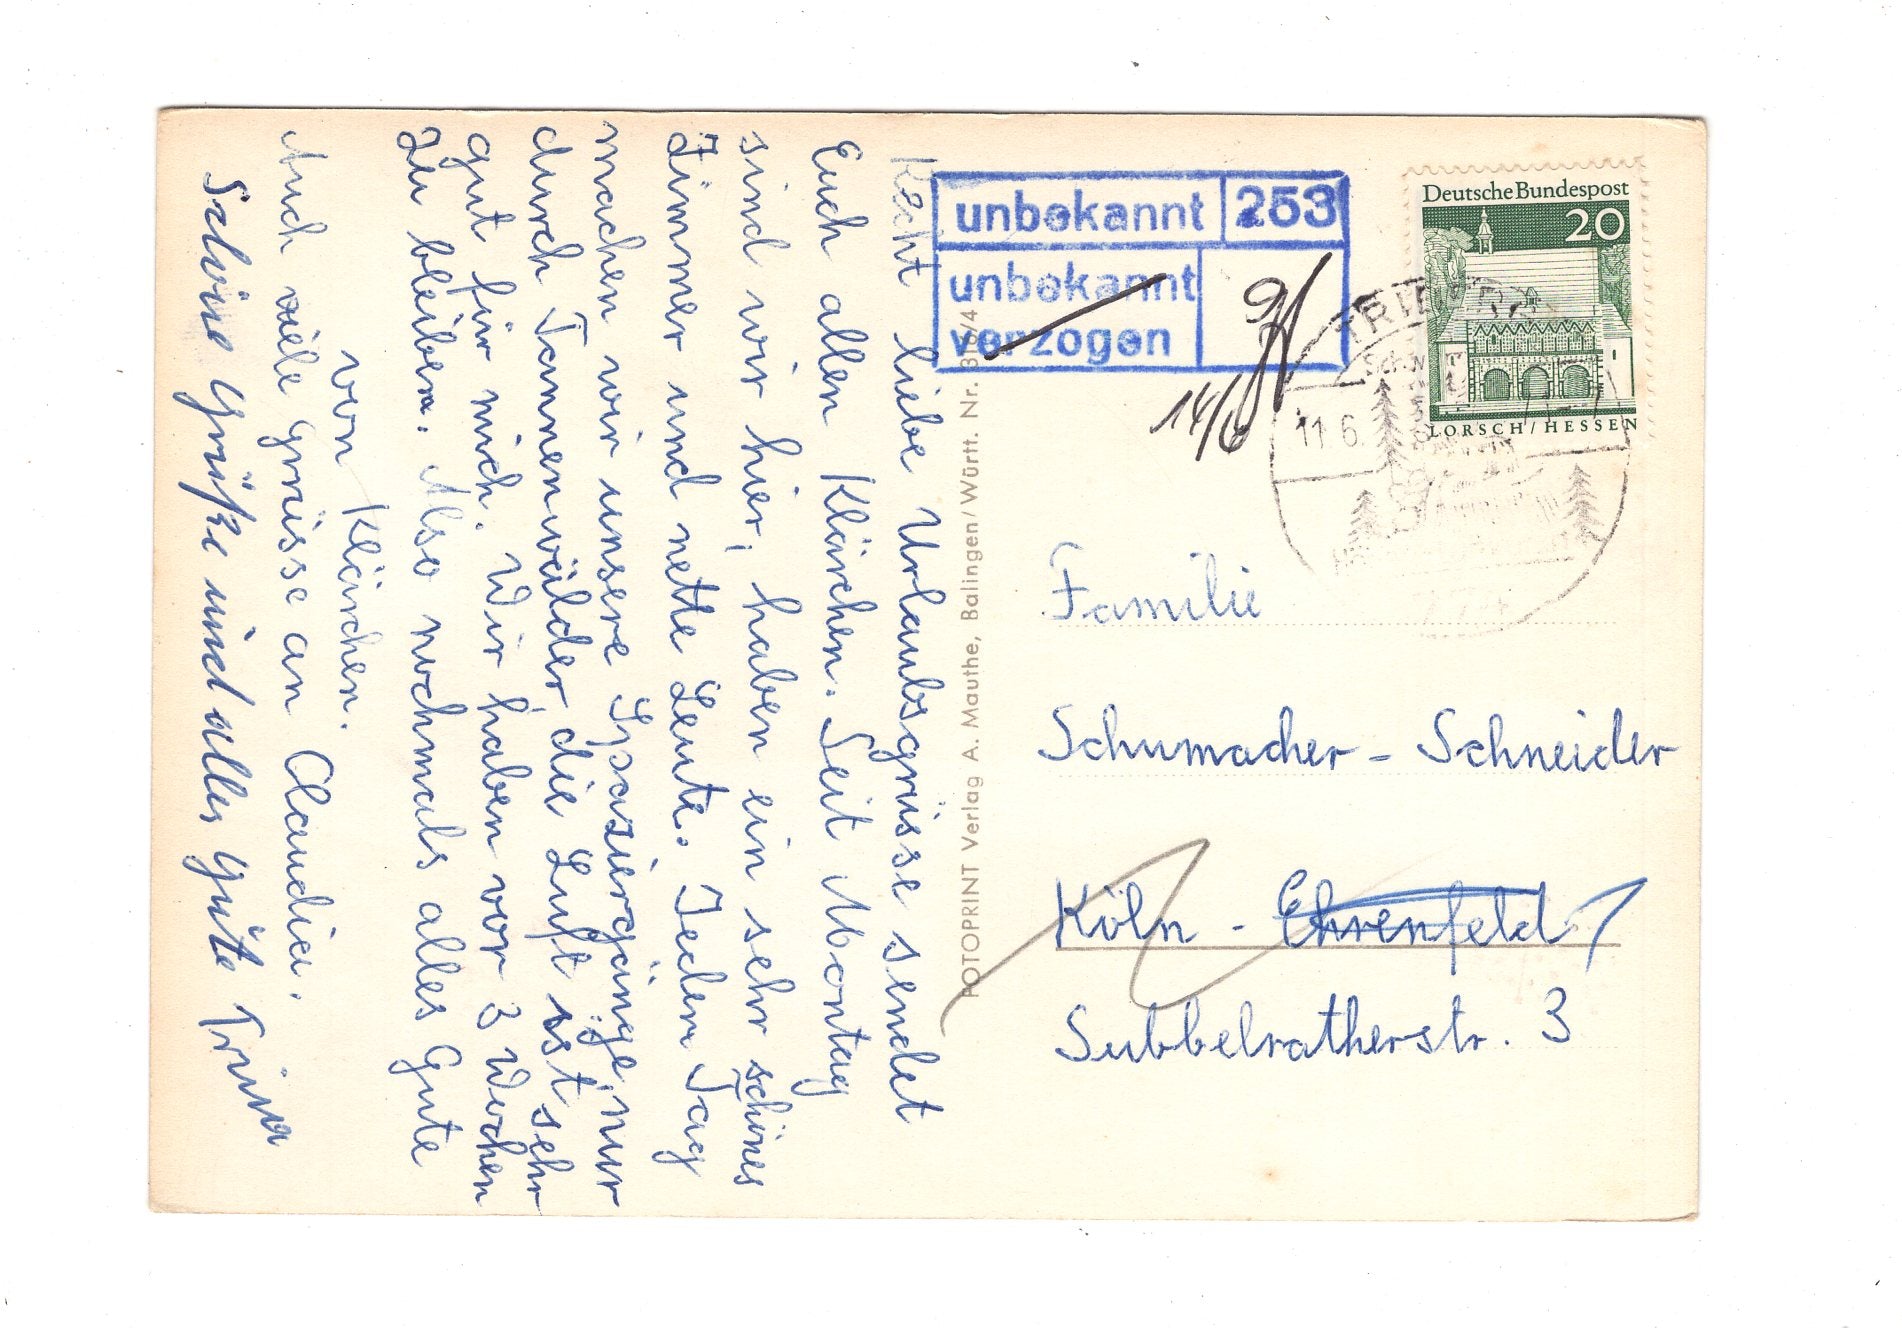 Recht liebe Urlaubsgrüsse sendet
Euch allen Klärchen. Seit Montag
sind wir hier, haben ein sehr schönes
Zimmer und nette Leute. Jeden Tag
machen wir unsere Spaziergänge, nur
durch Tannenwälder, die Luft ist sehr
gut für mich. Wir haben vor 3 Wochen
zu bleiben. Also nochmals alles Gute
von Klärchen.
Auch viele Grüsse an Claudia.
Schöne Grüße und alles Gute Trina
FOTOPRINT Verlag A. Mauthe, Balingen/Württ. Nr. 816/4
unbekannt 253
unbekannt
verzogen
14/6
Deutsche Bundespost
20
LORSCH/HESSEN
TRIBERG
11.6.
Familie
Schumacher - Schneider
Köln - Ehrenfeld
Subbelratherstr. 3